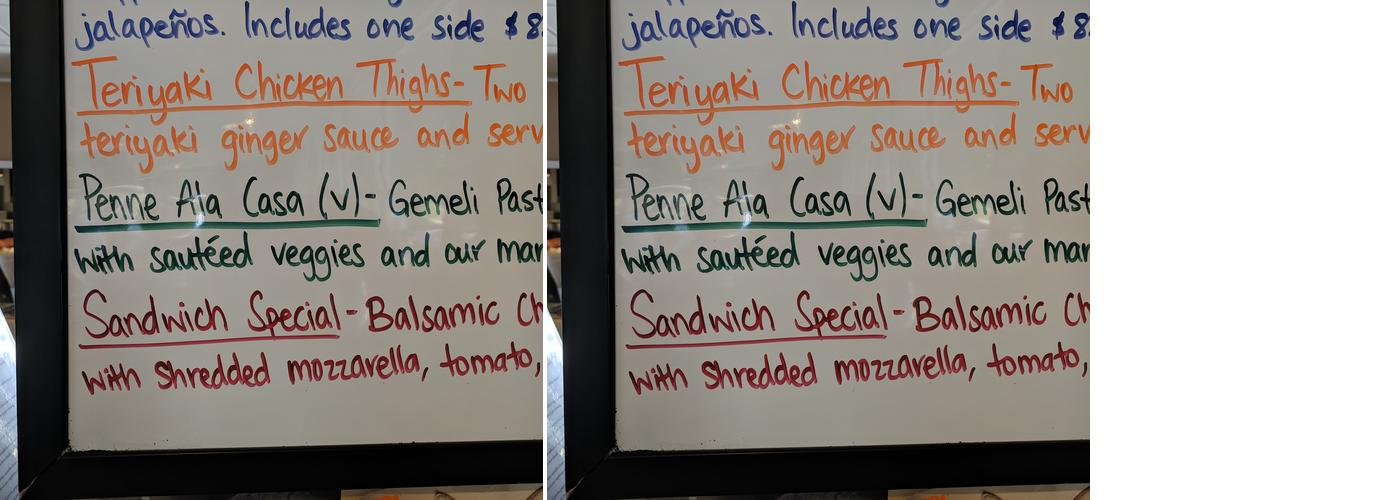 jalapeños. Includes one side $8
Teriyaki Chicken Thighs- Two
teriyaki ginger sauce and serv
Penne Ala Casa (v)- Gemeli Past
with sautéed veggies and our mar
Sandwich Special- Balsamic Ch
with shredded mozzarella, tomato,
jalapeños. Includes one side $8
Teriyaki Chicken Thighs- Two
teriyaki ginger sauce and serv
Penne Ala Casa (v)- Gemeli Past
with sautéed veggies and our mar
Sandwich Special- Balsamic Ch
with shredded mozzarella, tomato,